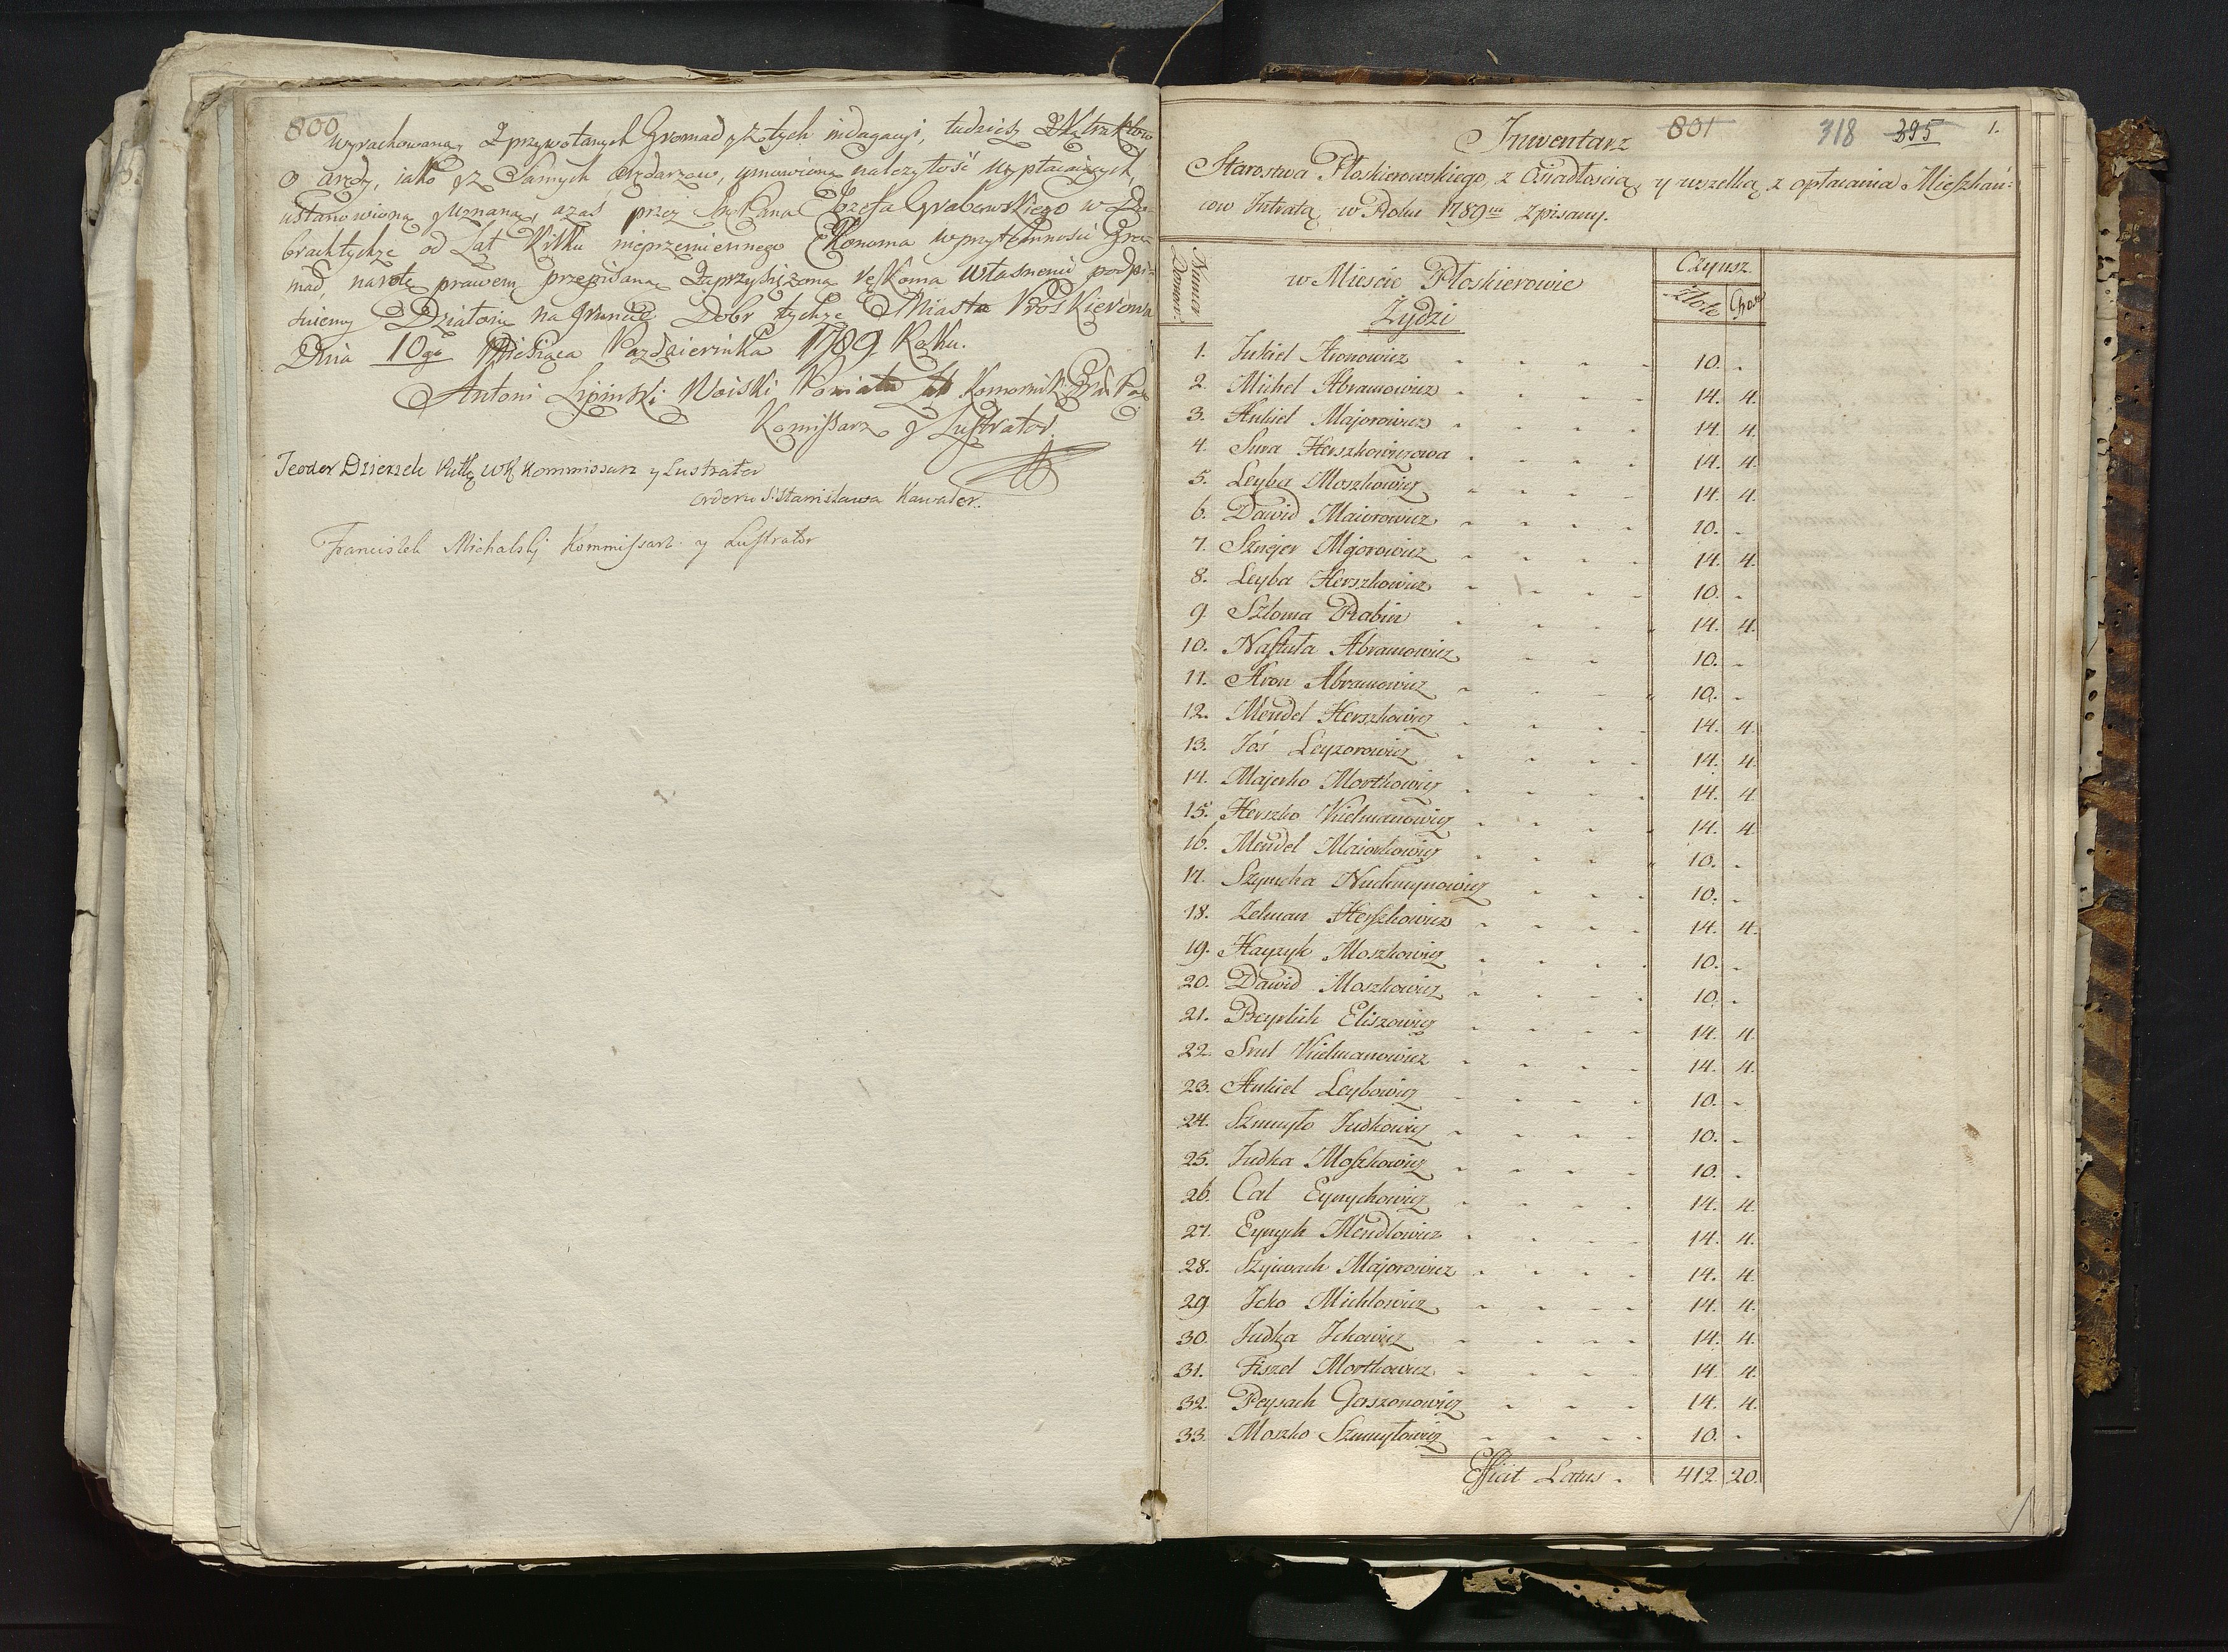 800
wyrachowaną, z przywołanych Gromad y z tych indagacyi, tudzież z Kątraktow
o arędy, iako y z Samych arędarzow, umowioną należytość wypłacaiących,
ustanowioną y uznaną, a zaś przez Jmć Pana Jozefa Grabowskiego w Do-
brach tychże od Lat Kilku nieprzemiennego Ekonoma w przytomności Gro-
mad, na rotę prawem przepisaną zaprzysiężoną, rękoma własnemi podpi-
suiemy Działo się na gruncie Dobr tychże Miasta Płoskierowa
Dnia 10go Miesiąca Pazdziernika 1789 Roku.
Antoni Lipinski Woiski Powiatu Lat Komornik
Komissarz y Lustrator.
Teodor Dzierzek WK Kommissarz y Lustrator
Orderu S: Stanisława Kawaler.
Franciszek Michalski Kommissarz y Lustrator
801 318 395 1.
Inwentarz
Starostwa Płoskierowskiego, z Osiadłoscią, y wszelką z opłacania Mieszkań:
cow Intratą w Roku 1789m zpisany.
Numer Domow.
w Miescie Płoskierowie
Czynsz.
Złote Gro:
Zydzi
1. Jukiel Aronowicz - - - - 10. -
2. Michel Abramowicz - - - - 14. 4.
3. Ankiel Majorowicz - - - - 14. 4.
4. Sura Herszkowiczowa - - - - 14. 4.
5. Leyba Moszkowicz - - - - 14. 4.
6. Dawid Maiorowicz - - - - 10. -
7. Sznejer Majorowicz - - - - 14. 4.
8. Leyba Herszkowicz - - - - 10. -
9. Szloma Rabin - - - - 14. 4.
10. Naftuła Abramowicz - - 10. -
11. Aron Abramowicz - - - - 10. -
12. Mendel Herszkowicz - - - - 14. 4.
13. Joś Leyzorowicz - - - - 14. 4.
14. Majorko Mortkowicz - - - - 14. 4
15. Herszko Kielmanowicz - - - - 14. 4.
16. Mendel Maiorkowicz - - - - 10. -
17. Szymcha Nuchmynowicz - - - 10. -
18. Zelman Herszkowicz - - - - 14. 4.
19. Hayzyk Moszkowicz - - - - 10. -
20. Dawid Moszkowicz - - - - 10. -
21. Beyrlich Eliszowicz - - - - 14. 4.
22. Srul Kielmanowicz - - - - 14. 4.
23. Ankiel Leybowicz - - - - 10. -
24. Szmuyło Judkowicz - - - - 10. -
25. Judka Moszkowicz - - - - 10. -
26. Cal Eynychowicz - - - - 14. 4.
27. Eynych Mendlowicz - - - - 14. 4.
28. Majorowicz - - - - 14. 4.
29 Icko Michlowicz - - - - 14. 4.
30. Judka Ickowicz - - - - 14. 4.
31. Fiszel Mortkowicz - - - - 14. 4.
32. Peysach Gaszonowicz - - - 14. 4.
33. Moszko Szmuyłowicz - - - - 10. -
Efficit Latus - 412. 20.